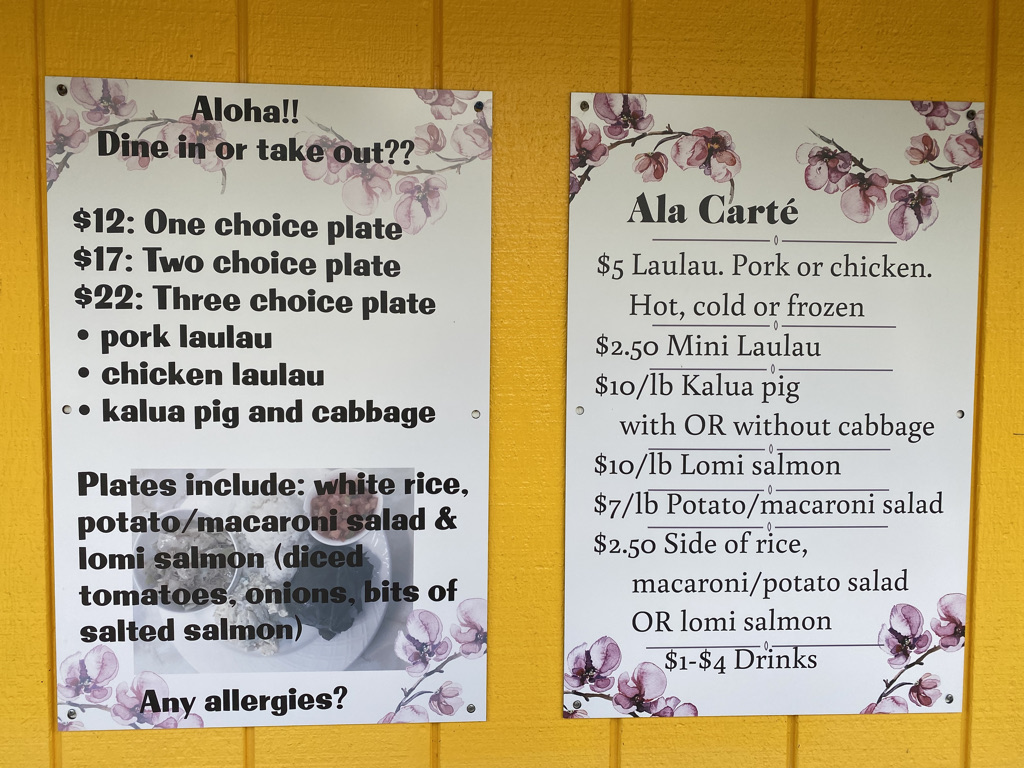 Aloha!!
Dine in or take out??
$12: One choice plate
$17: Two choice plate
$22: Three choice plate
• pork laulau
• chicken laulau
• kalua pig and cabbage
Plates include: white rice,
potato/macaroni salad &
lomi salmon (diced
tomatoes, onions, bits of
salted salmon)
Any allergies?
Ala Carté
$5 Laulau. Pork or chicken.
Hot, cold or frozen
$2.50 Mini Laulau
$10/lb Kalua pig
with OR without cabbage
$10/lb Lomi salmon
$7/lb Potato/macaroni salad
$2.50 Side of rice,
macaroni/potato salad
OR lomi salmon
$1-$4 Drinks